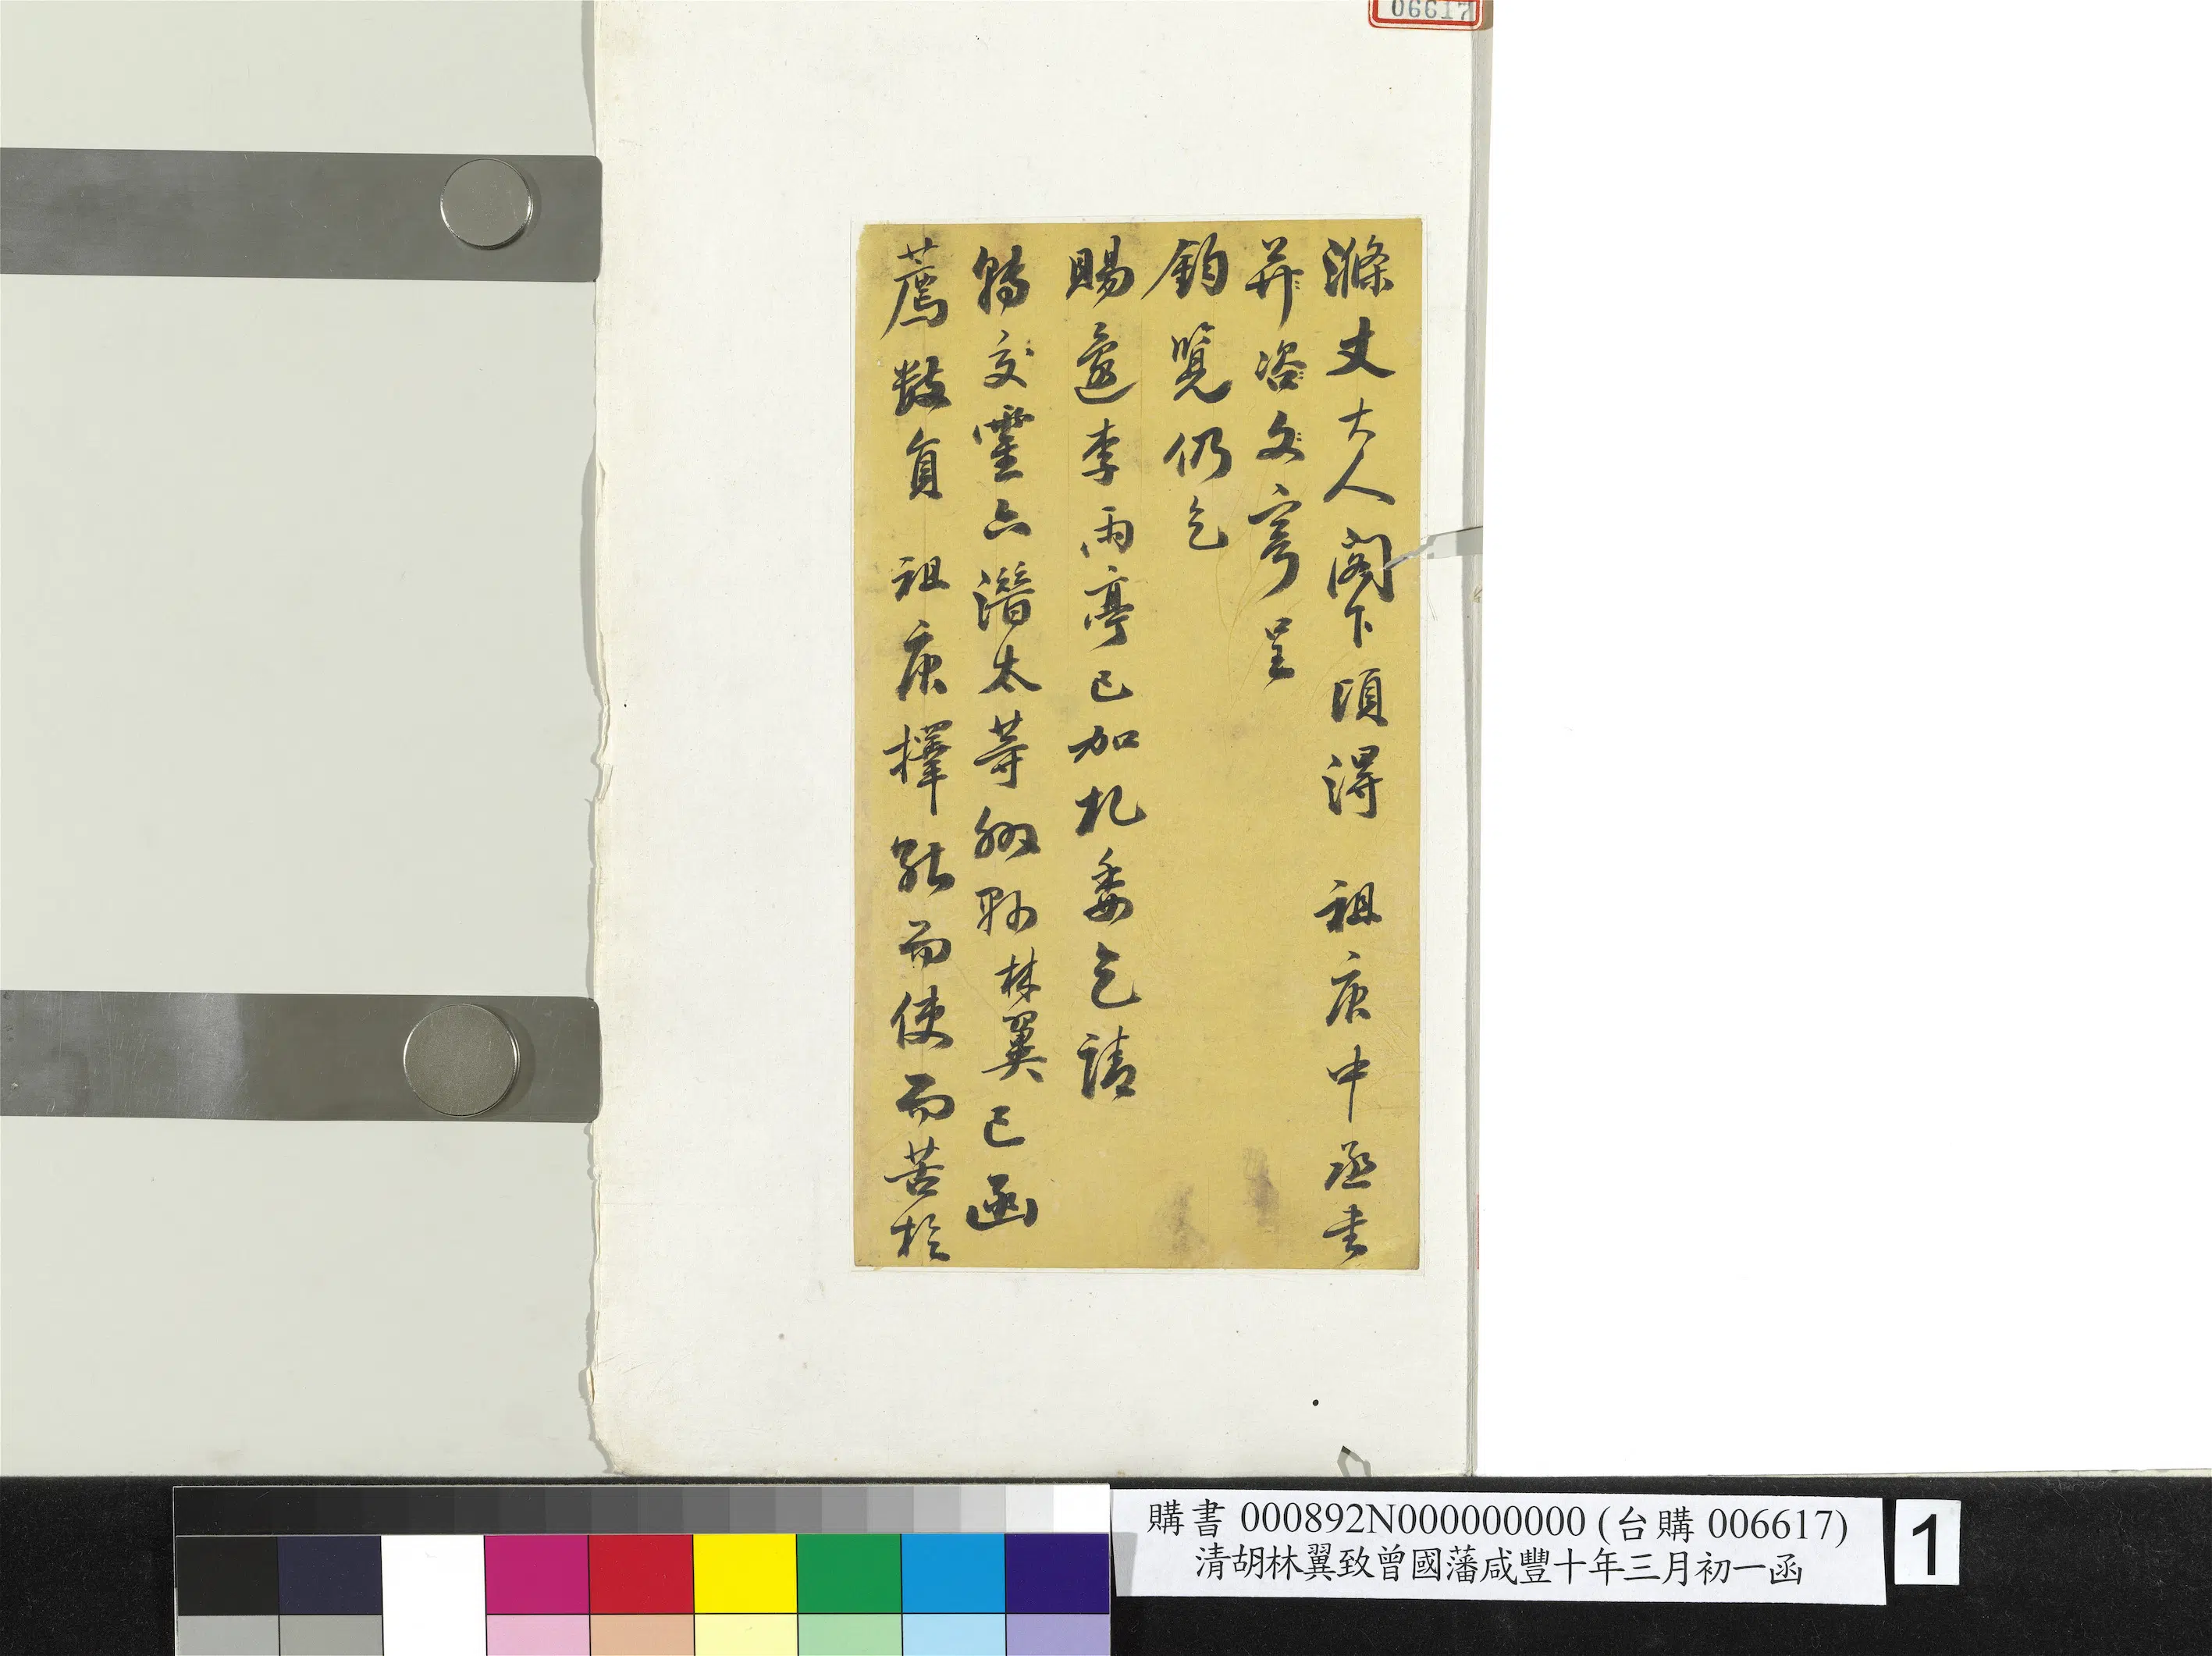 06617
滌丈大人閣下頃得 祖庚中丞書
并咨文寄呈
鈞覽仍乞
賜還李雨亭已加札委乞請
轉交霍六潛太等缺林翼已函
薦數員 祖庚擇能而使而苦於
購書 000892N000000000 (台購 006617)
清胡林翼致曾國藩咸豐十年三月初一函
1